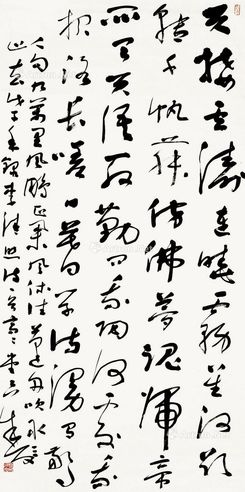 天接云涛连晓雾星河欲
转千帆舞仿佛梦魂归帝
所闻天语殷勤问我归何处我
报路长嗟日暮学诗谩有惊
人句九万里风鹏正举风休住蓬舟吹取
三山去 李清照